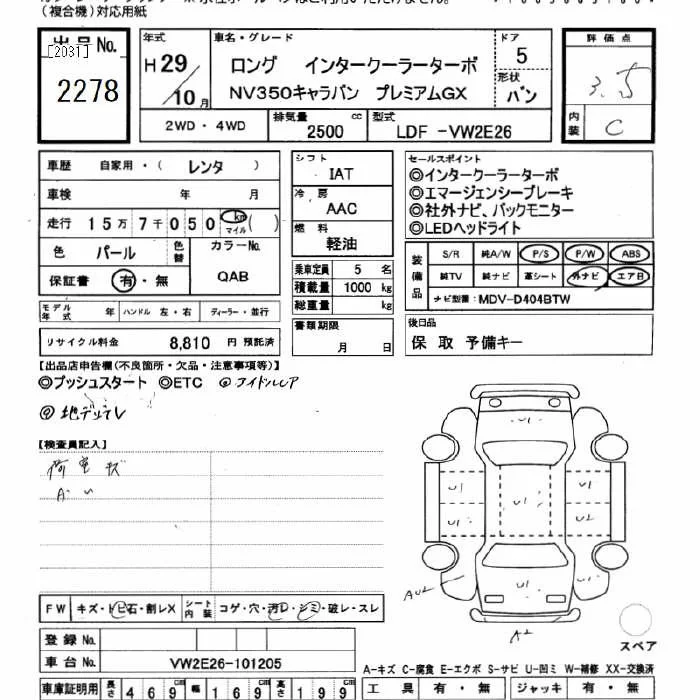 (複合機)対応用紙
出品No.
[2031]
2278
年式
H29/10月
車名・グレード
ロング インタークーラーターボ
NV350キャラバン プレミアムGX
ドア
5
形状
バン
評価点
3.5
内装
C
2WD・4WD
排気量
2500
cc
型式
LDF -VW2E26
車歴 自家用・( レンタ )
車検 年 月
走行 15万7千050 km マイル ( )
色 パール 色替 カラーNo.
保証書 有・無 QAB
モデル年式 年 ハンドル 左・右 ディーラー・並行
リサイクル料金 8,810 円 預託済
シフト
IAT
冷房
AAC
燃料
軽油
乗車定員 5 名
積載量 1000 kg
総重量 kg
書類期限
月 日
セールスポイント
◎インタークーラーターボ
◎エマージェンシーブレーキ
◎社外ナビ、バックモニター
◎LEDヘッドライト
装備品
S/R 純A/W P/S P/W ABS
純TV 純ナビ 革シート 外ナビ エアB
ナビ型番:MDV-D404BTW
後日品
保 取 予備キー
【出品店申告欄(不良箇所・欠品・注意事項等)】
◎プッシュスタート ◎ETC ◎アイドルUP
◎地デジTV
【検査員記入】
荷室ズ
A・U
U1
U1
U1
U1
U1
U1
U2
AU2
A2
FW キズ・トビ石・割レX シート内装 コゲ・穴・汚レ・シミ・破レ・スレ
登録No.
車台No. VW2E26-101205
車庫証明用 長さ 469 cm 幅 169 cm 高さ 199 cm
スペア
A-キズ C-腐食 E-エクボ S-サビ U-凹ミ W-補修 XX-交換済
工具 有・無 ジャッキ 有・無